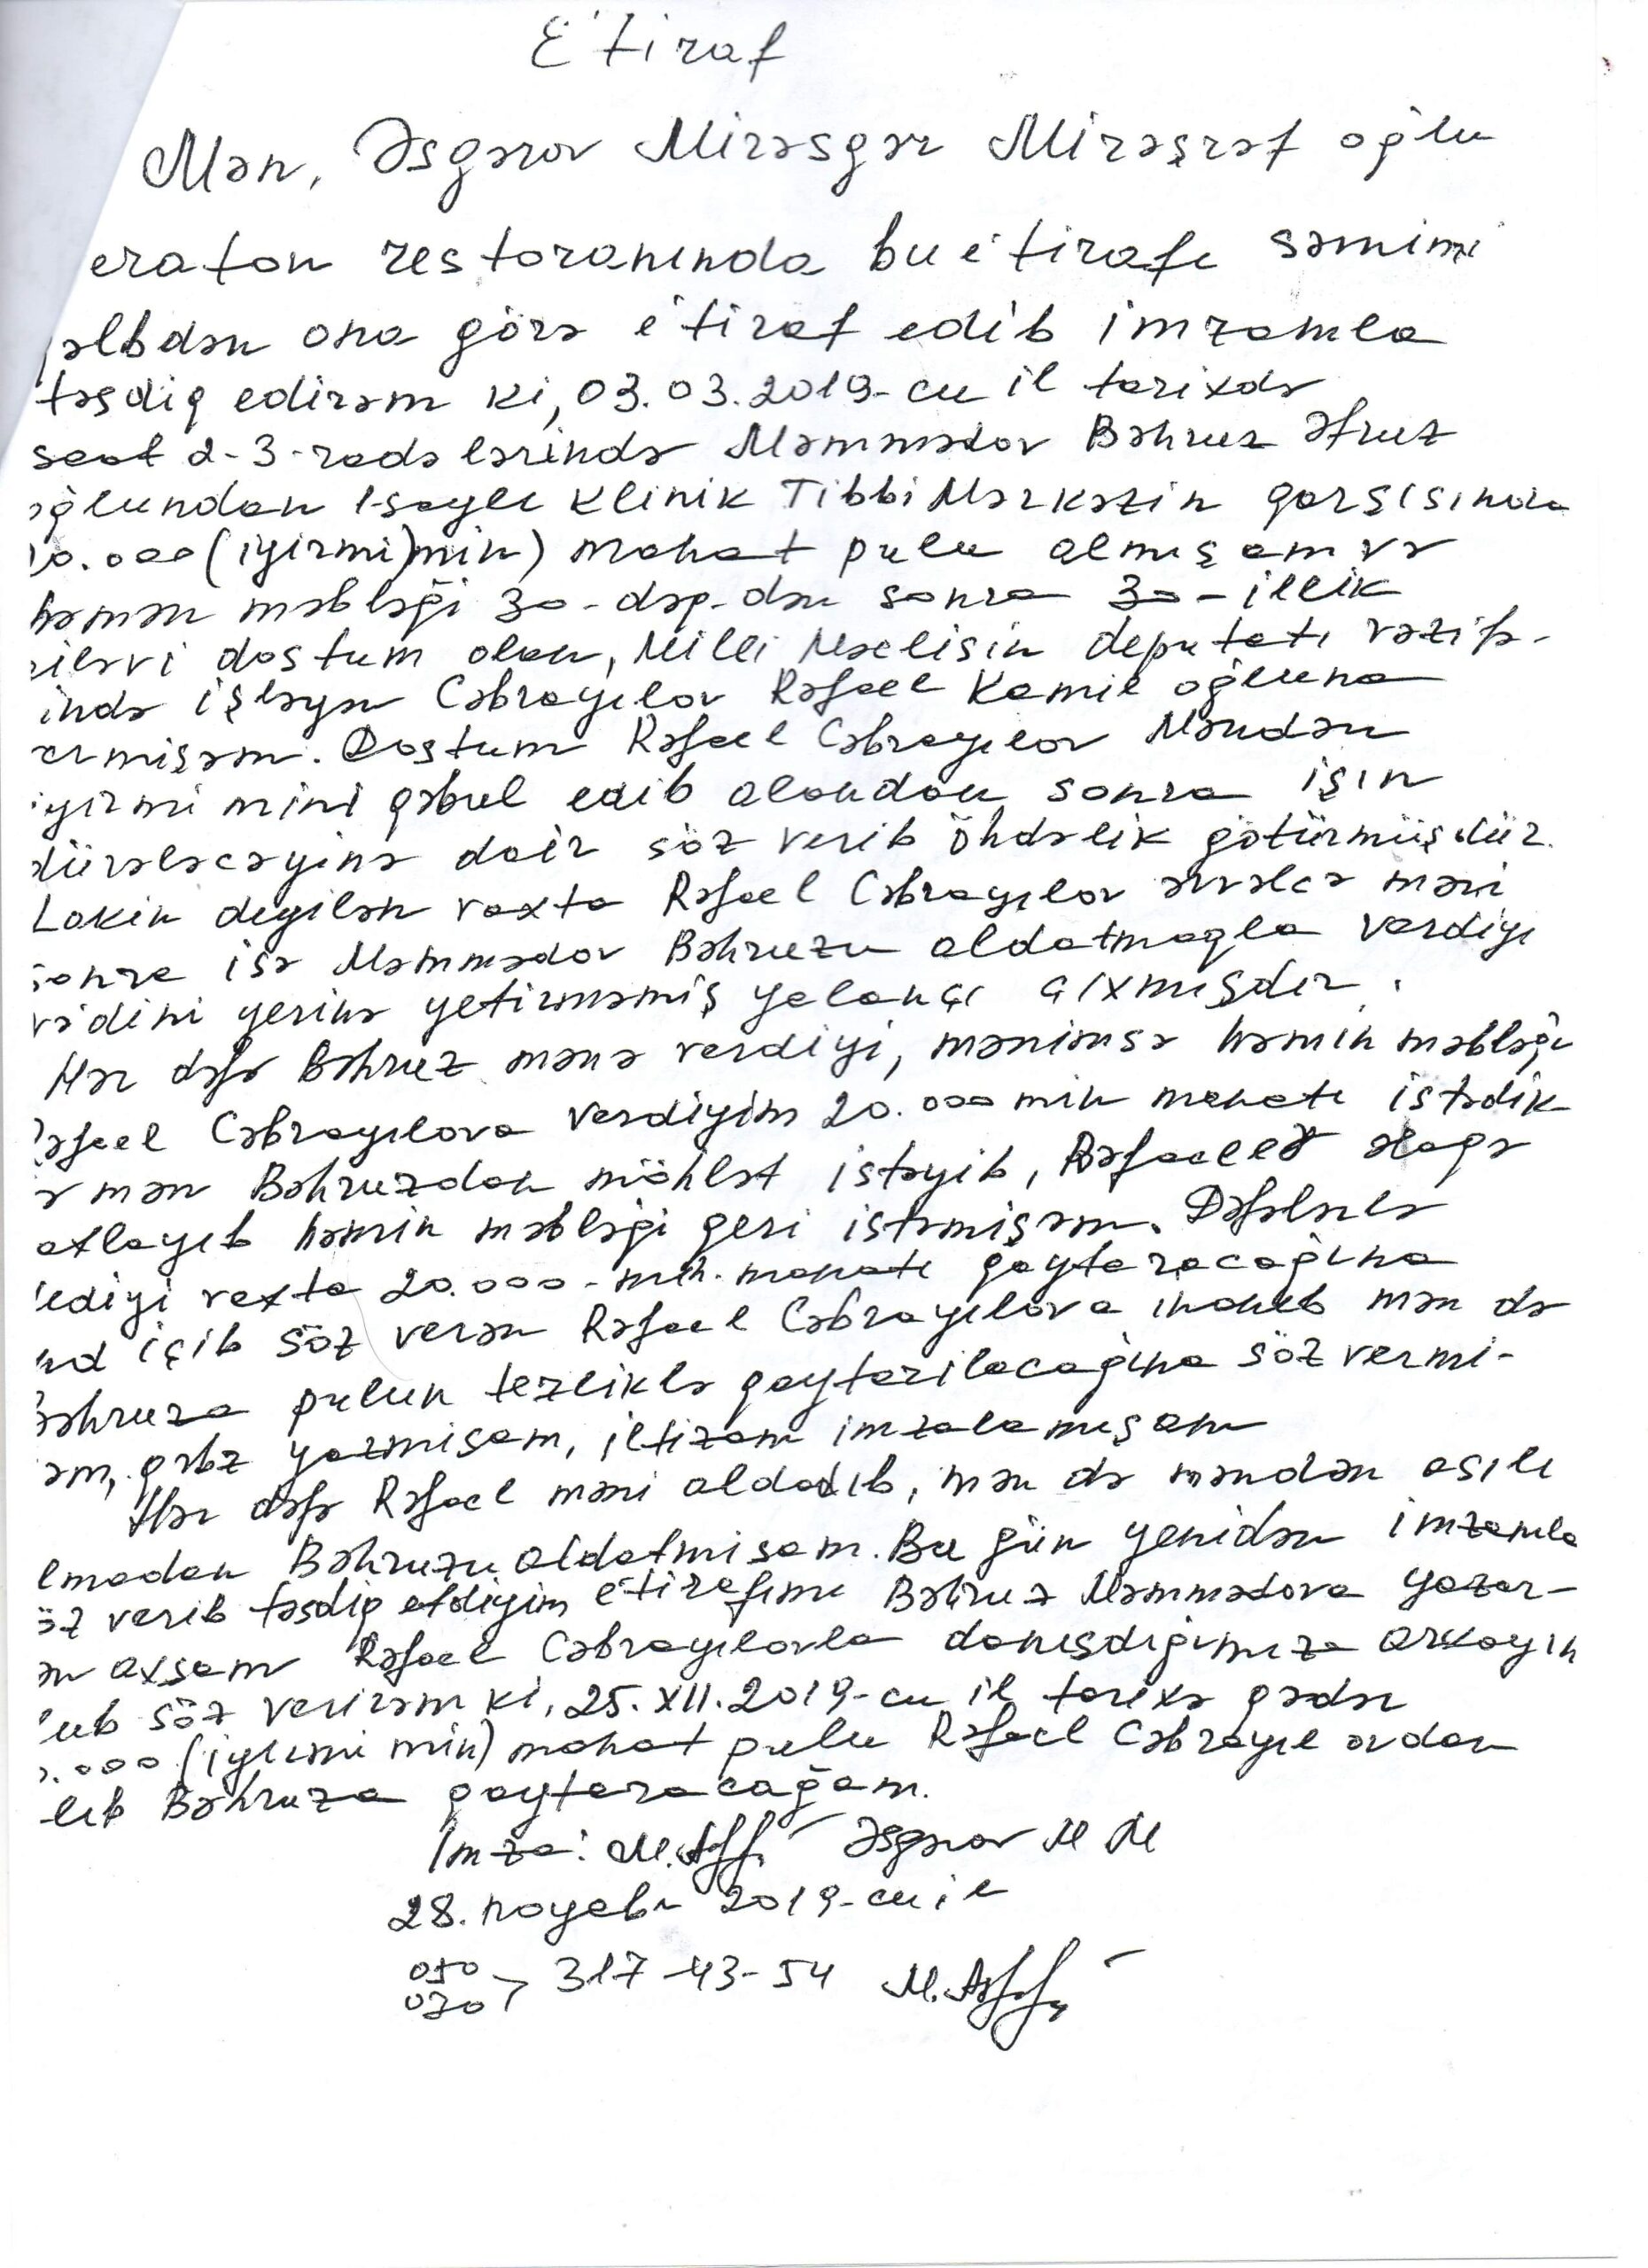 E'tiraf
Mən, Əsgərov Mirəsgər Mirəşrəf oğlu
eraton restoranında bu e'tirafı səmimi
əlbdən ona görə e'tiraf edib imzamla
təsdiq edirəm ki, 03.03.2019-cu il tarixdə
saat 2-3-radələrində Məmmədov Bəhruz Əfruz
oğlundan 1 saylı Klinik Tibbi Mərkəzin qarşısında
20.000 (iyirmi)min) manat pulu almışam və
həmən məbləği 30-dəq-dən sonra 30-illik
dostum olan, Milli Məclisin deputatı vəzifə-
ində işləyən Cəbrayılov Rəfael Kamil oğluna
ermişəm. Dostum Rəfael Cəbrayılov Məndən
iyirmi mini qəbul edib alandan sonra işin
düzələcəyinə dair söz verib öhdəlik götürmüşdür.
Lakin deyilən vaxta Rəfael Cəbrayılov əvvəlcə məni
sonra isə Məmmədov Bəhruzu aldatmaqla verdiyi
və'dini yerinə yetirməmiş yalançı çıxmışdır.
Hər dəfə Bəhruz mənə verdiyi, mənimsə həmin məbləği
Rəfael Cəbrayılova verdiyim 20.000 min manatı istədik
ə mən Bəhruzdan möhlət istəyib, Rəfaellə əlaqə
axlayıb həmin məbləği geri istəmişəm. Dəfələrlə
dediyi vaxta 20.000-min. manatı qaytaracağına
nd içib söz verən Rəfael Cəbrayılova inanıb mən də
Bəhruza pulun tezliklə qaytarılacağına söz vermi-
əm, qəbz yazmışam, iltizam imzalamışam
Hər dəfə Rəfael məni aldadıb, mən də məndən asılı
lmadan Bəhruzu aldatmışam. Bu gün yenidən imzamla
öz verib təsdiq etdiyim e'tirafımı Bəhruz Məmmədova yazar-
ən axşam Rəfael Cəbrayılovla danışdığımıza arxayın
lub söz verirəm ki, 25.XII.2019-cu il tarixə qədər
0.000 (iyirmi min) manat pulu Rəfael Cəbrayılovdan
lıb Bəhruza qaytaracağam.
İmza: M. Əsgərov M M
28. noyabr 2019-cu il
050
070 > 317-43-54